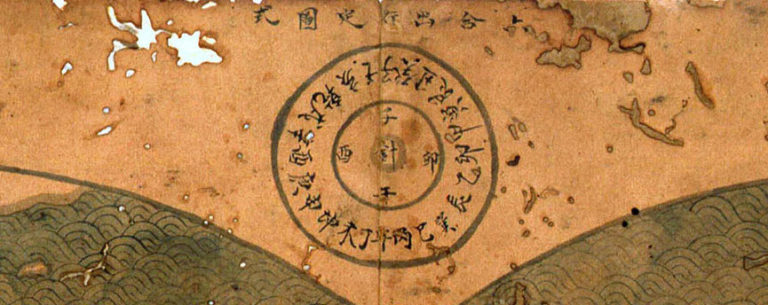 六合出行定國式
子
酉 針 卯
午
子 癸 丑 艮 寅 甲 卯 乙 辰 巳 丙 午 丁 未 坤 申 庚 酉 辛 戌 乾 亥 壬